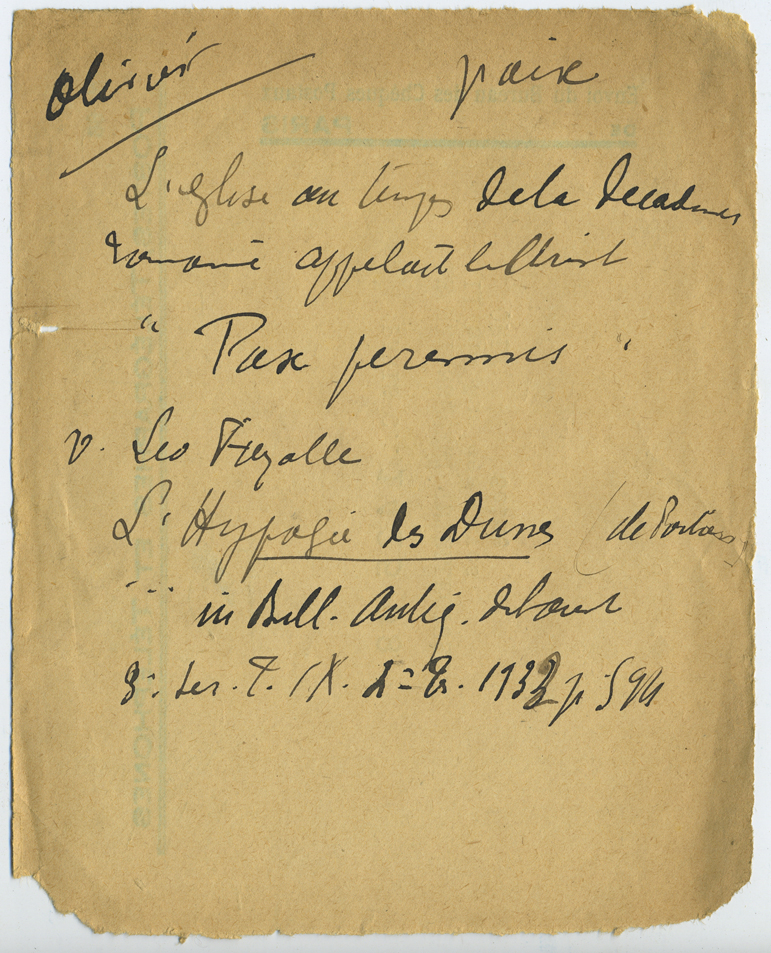 Olivier paix
L'église au temps de la décadence
romaine appelait le Christ
" Pax perennis "
v. Leo
L'Hypogée des Dunes (de Poitiers)
in Bull. Antiq. de l'ouest
3e. ser. T. IX. 2e Tr. 1932 p